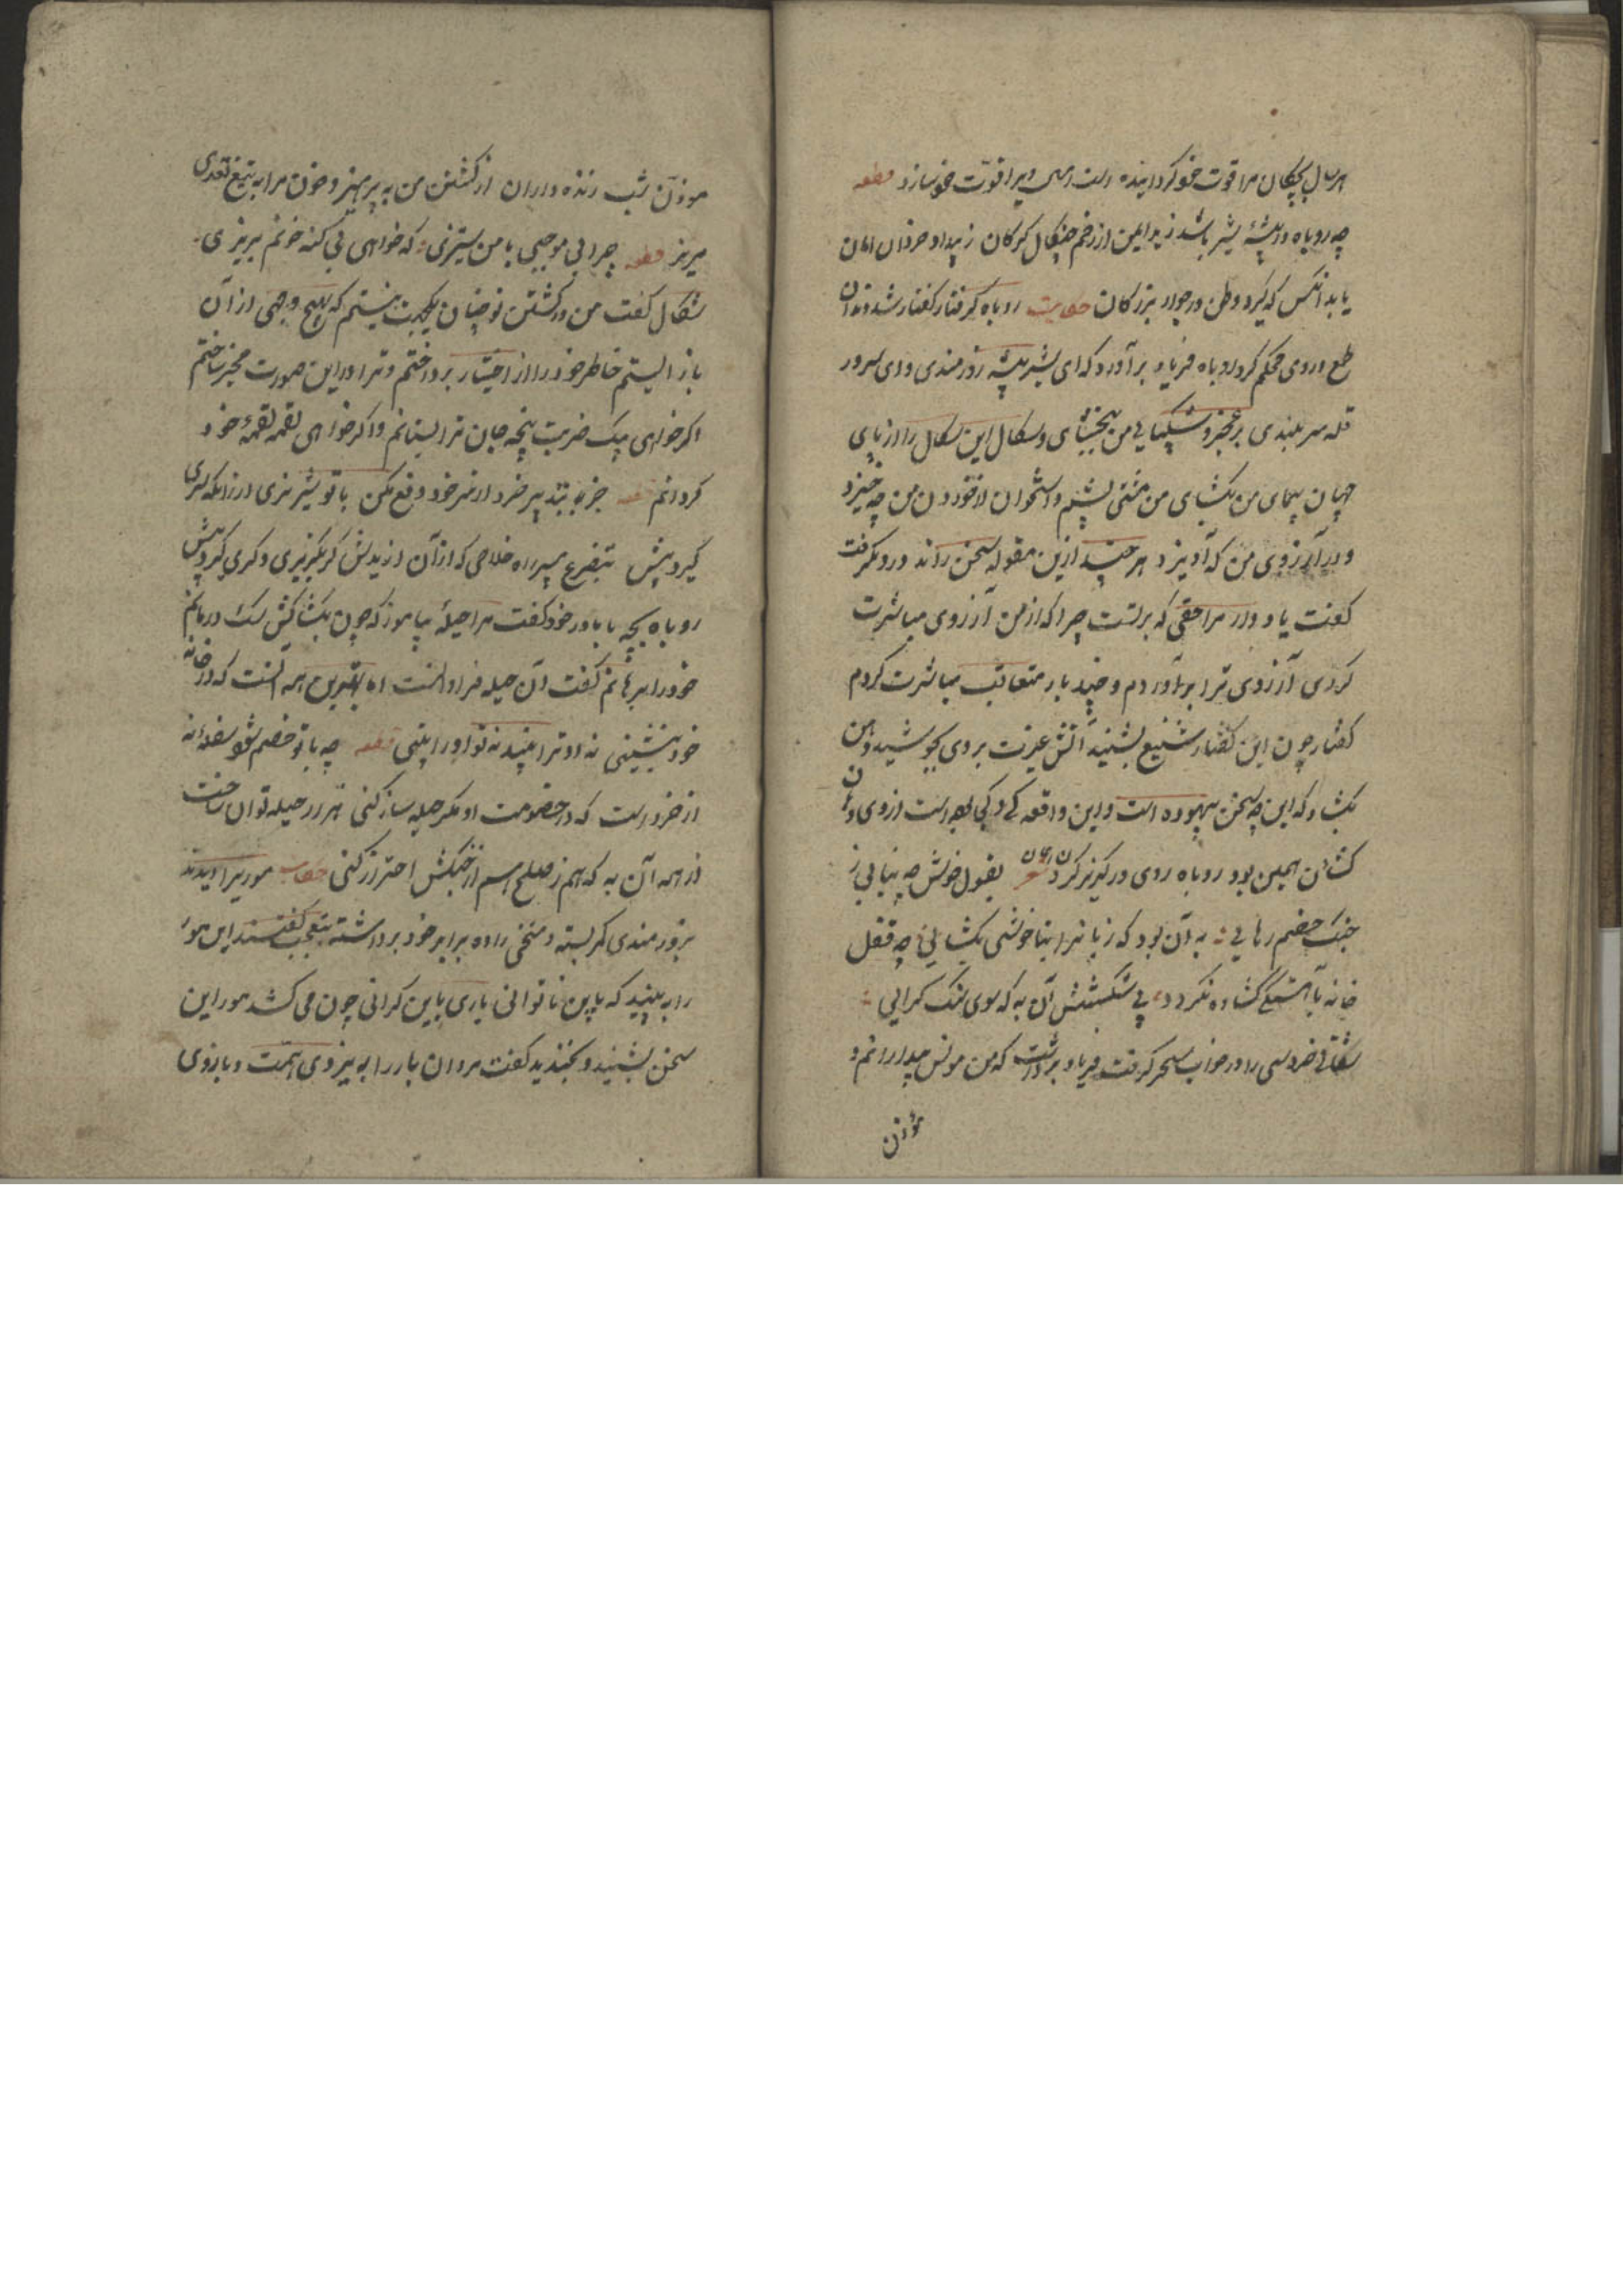 هر سال بچگان مرا قوت خو گردانیده است امسال ویرا قوت خو سازد قطعه
چه روباه در بیشهٔ شیر باشد زید ایمن از زخم چنگال گرگان ز بیداد خردان امان
یابد انکس که گیرد وطن در جوار بزرگان حکایت روباه گرفتار کفتار شد دندان
طمع در وی محکم کرد روباه فریاد برآورد که ای شیر بیشه زورمندی و ای سرور
قله سربلندی بر عجز و شکستگی من ببخشای و شکال این شکال را از پای
جهان پیمای من بگشای من مشتی پشم و استخوانم از خوردن من چه خیزد
و در آرزوی من که آویزد هر چند ازین مقوله سخن راند در وی نگرفت
گفت یاد دار مرا حقی که برتست چرا که از من آرزوی مباشرت
کردی آرزوی ترا برآوردم و چند بار متعاقب مباشرت کردم
کفتار چون این گفتار شنیع بشنید آتش غیرت بر وی بجوشید دهن
بگشاد که این چه سخن بیهوده است و این واقعه کی و کجا بوده است از وی دهان
گشادن همین بود روباه روی در گریز کردن همان شعر بقول خوش چه نیابی ز
جنگ خصم رهایی به آن بود که زبانرا بناخوشی بگشایی چه قفل
خانه بآهستگی گشاده نگردد پی شکستنش آن به که سوی سنگ گرایی
شغالی خروسی را در خواب سحر گرفت فریاد برداشت که من مونس بیدارانم و
مؤذن
موذن شب زنده داران از کشتن من به پرهیز و خون مرا به تیغ تعدی
مریز قطعه چرا بی موجبی با من ستیزی که خواهی بی گنه خونم بریزی
شغال گفت من در کشتن تو چنان یکجهت نیستم که بهیچ وجهی از آن
باز ایستم خاطر خود را از اختیار بپرداختم و ترا در این صورت مخیر ساختم
اگر خواهی بیک ضربت پنجه جان ترا بستانم و اگر خواهی لقمه لقمهٔ خود
گردانم قطعه جز به تدبیر خرد از سر خود دفع مکن با تو شریزی از زانکه سری
گیرد پیش بتضرع مسپر راه خلاصی که از آن از بدش گر بگریزی دگری گیرد پیش
روباه بچه با مادر خود گفت مرا حیلهٔ بیاموز که چون بکشاکش سگ درمانم
خود را برهانم گفت آن حیله فراوانست اما بهترین همه آنست که در خانه
خود بنشینی نه او ترا بیند نه تو او را بینی قطعه چه با تو خصم شود سفلهٔ نه
از خرد است که در خصومت او مکر حیله ساز کنی هزار حیله توان ساخت
از همه آن به که هم ز صلح هم از جنگش احتراز کنی حکایت موریرا دیدند
بزورمندی کمر بسته و ملخی را ده برابر خود برداشته بتعجب گفتند این مور
را ببینید که باین ناتوانی باری باین گرانی چون می کشد مور این
سخن بشنید و بخندید گفت مردان بار را به نیروی همت و بازوی